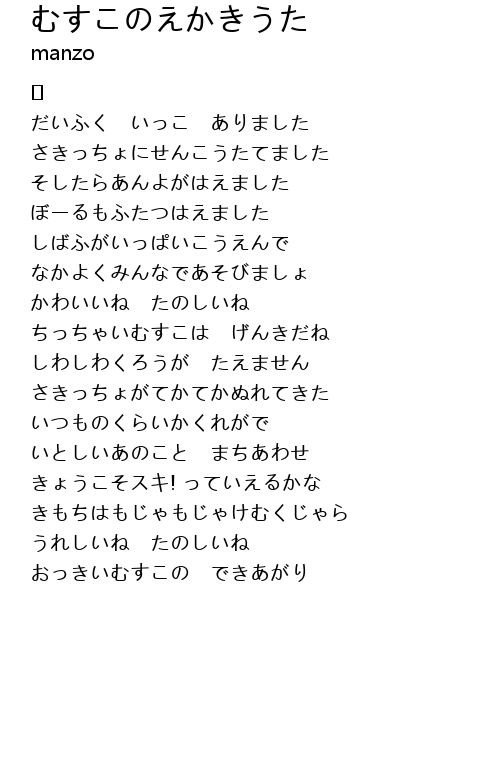 むすこのえかきうた
manzo
[]
だいふく　いっこ　ありました
さきっちょにせんこうたてました
そしたらあんよがはえました
ぼーるもふたつはえました
しばふがいっぱいこうえんで
なかよくみんなであそびましょ
かわいいね　たのしいね
ちっちゃいむすこは　げんきだね
しわしわくろうが　たえません
さきっちょがてかてかぬれてきた
いつものくらいかくれがで
いとしいあのこと　まちあわせ
きょうこそスキ! っていえるかな
きもちはもじゃもじゃけむくじゃら
うれしいね　たのしいね
おっきいむすこの　できあがり